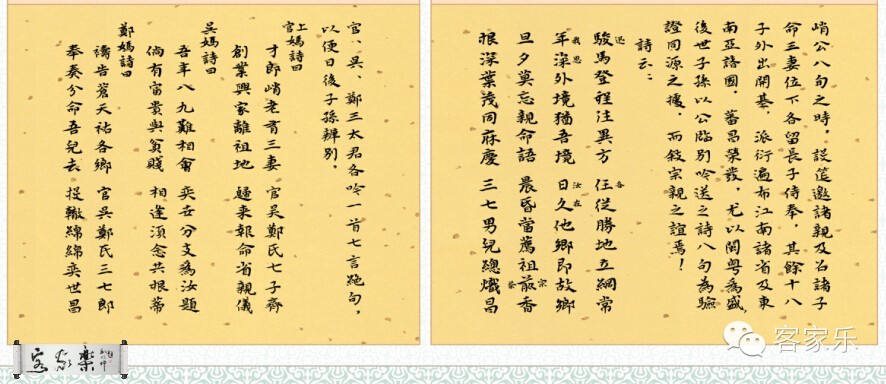 峭公八旬之時，設筵邀諸親及召諸子
命三妻位下各留長子侍奉，其餘十八
子外出開基，派衍遍布江南諸省及東
南亞諸國，蕃昌榮發，尤以閩粵為盛，
後世子孫以公臨別吟送之詩八句為驗
證同源之據，而敘宗親之誼焉！
詩云：
迅
駿馬登程往異方 任從勝地立綱常
各
我思
年深外境猶吾境 日久他鄉即故鄉
汝在
旦夕莫忘親命語 晨昏當薦祖前香
宗
根深葉茂同庥慶 三七男兒總熾昌
官、吳、鄭三太君各吟一首七言絕句，
以便日後子孫辨別，
上官媽詩曰
才郎峭老有三妻 官吳鄭氏七子齊
創業興家離祖地 歸來報命省親儀
吳媽詩曰
吾年八九難相會 奕世分支為汝題
倘有富貴與貧賤 相逢須念共根蒂
鄭媽詩曰
禱告蒼天祐各鄉 官吳鄭氏三七郎
奉奏分命吾兒去 綿綿奕世昌
客家樂
客家乐